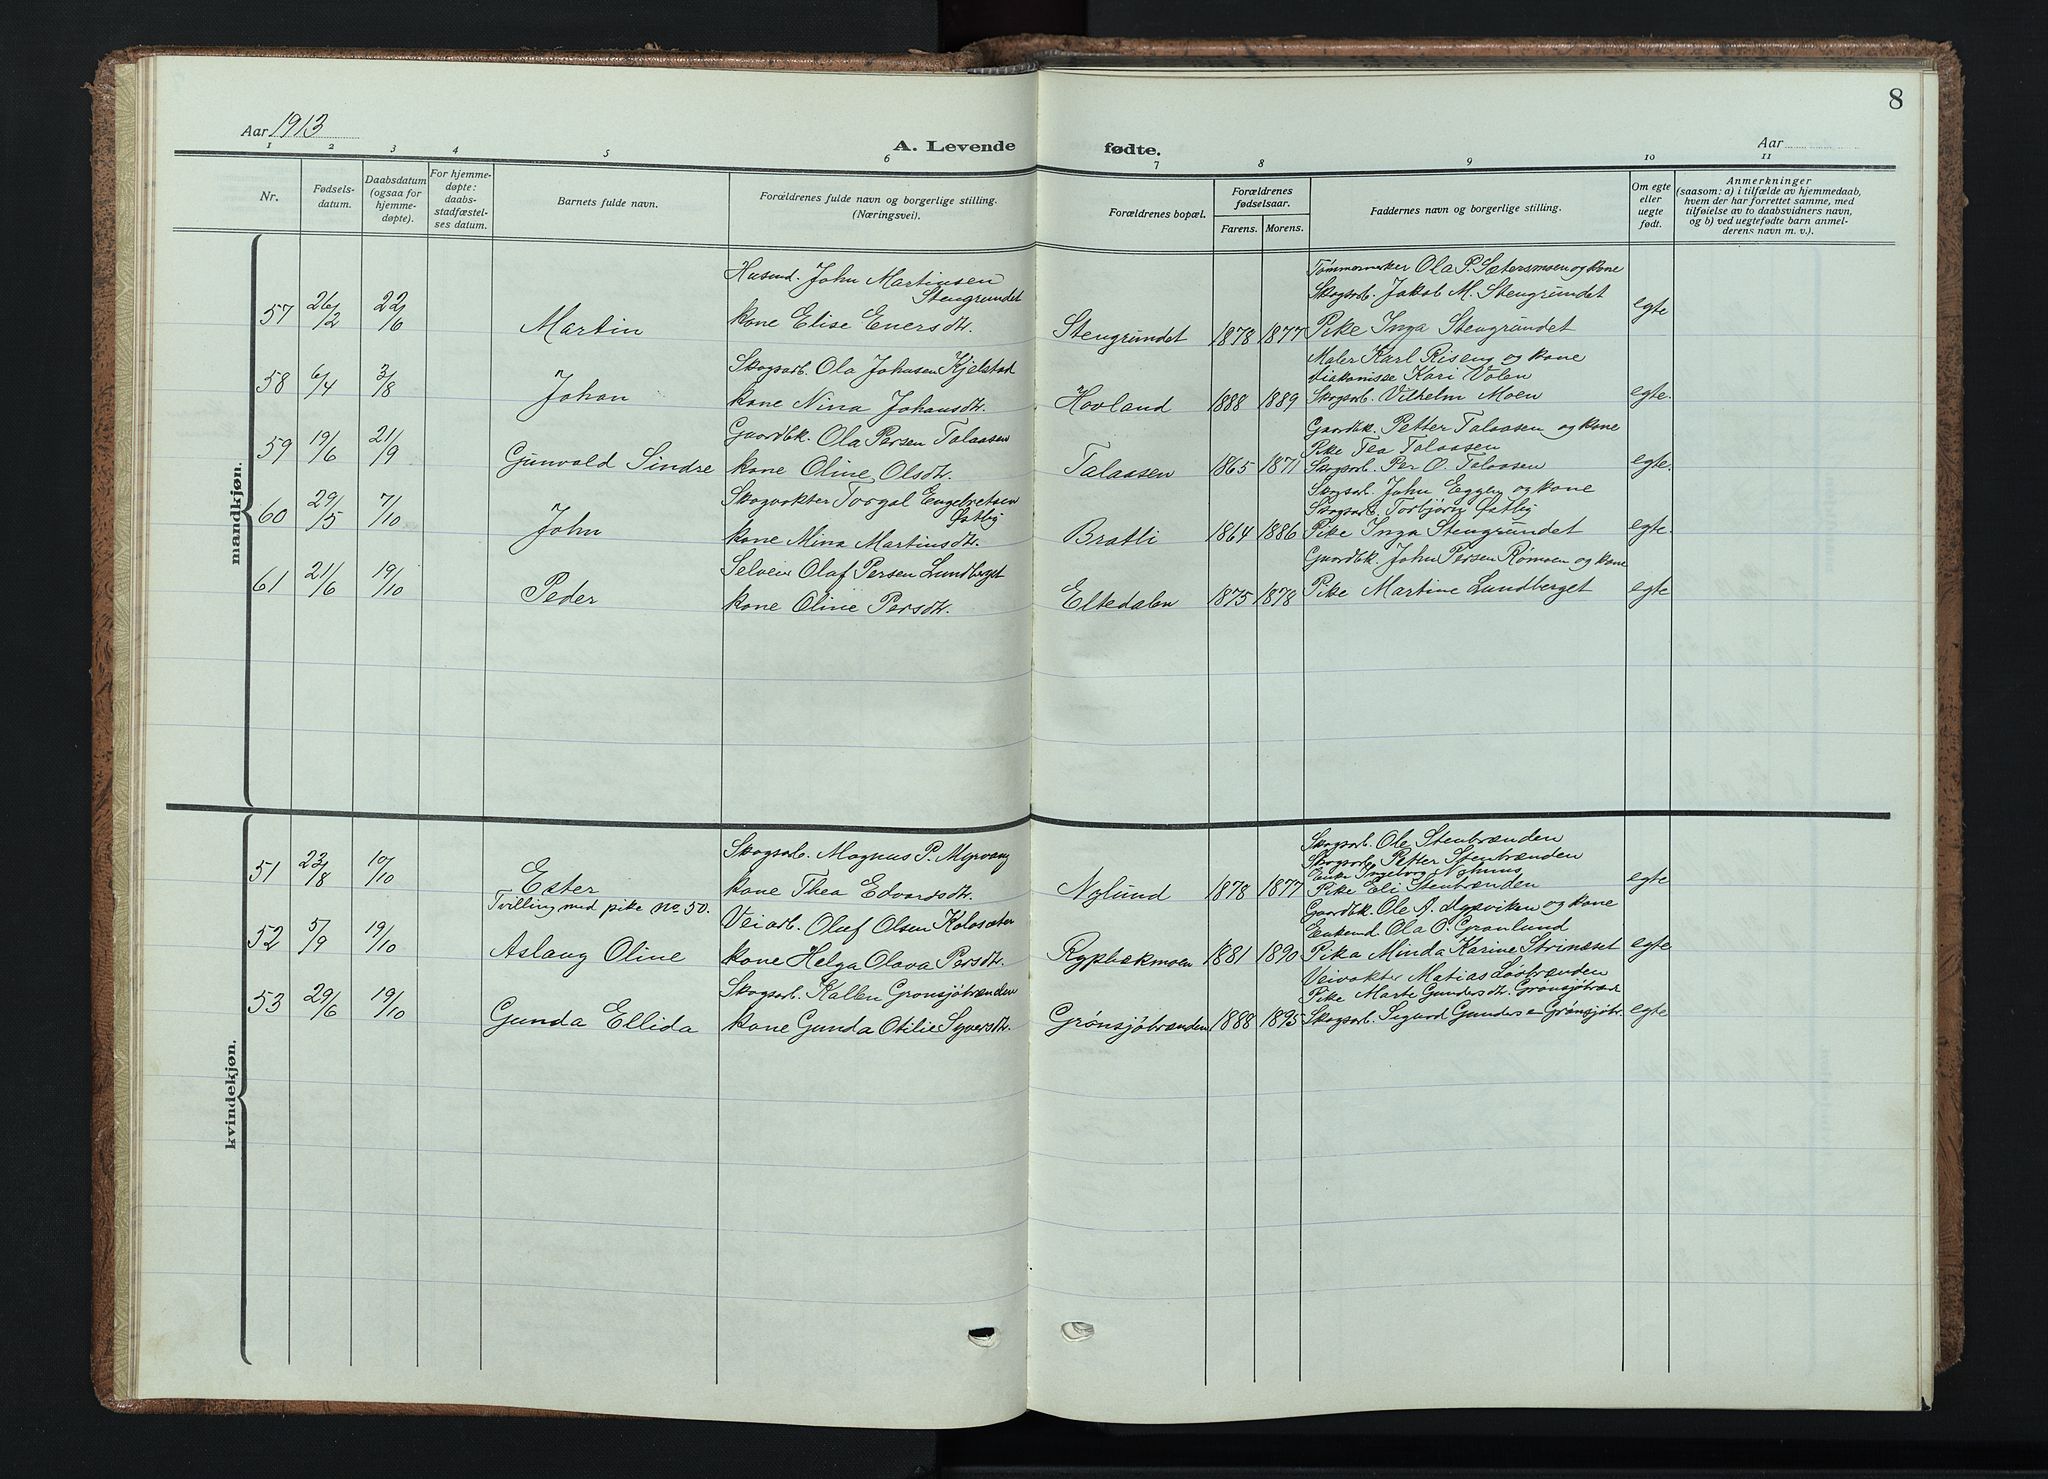 8
Aar 1913
A. Levende fødte.
Aar
1 2 3 4 5 6 7 8 9 10 11
Nr.
Fødsels-
datum.
Daabsdatum
(ogsaa for
hjemme-
døpte).
For hjemme-
døpte:
daabs-
stadfæstel-
ses datum.
Barnets fulde navn.
Forældrenes fulde navn og borgerlige stilling.
(Næringsvei).
Forældrenes bopæl.
Forældrenes
fødselsaar.
Farens. Morens.
Faddernes navn og borgerlige stilling.
Om egte
eller
uegte
født.
Anmerkninger
(saasom: a) i tilfælde av hjemmedaab,
hvem der har forrettet samme, med
tilføielse av to daabsvidners navn,
og b) ved uegtefødte barn anmel-
derens navn m. v.).
mandkjøn.
Husmd. John Martinsen
Stengrundet
57 26/2 22/6 Martin kone Elise Enersdtr. Stengrundet 1878 1877
Tømmermerker Ola P. Sætersmoen og kone
Skogsarb. Jakob M. Stengrundet
Pike Inga Stengrundet egte
Skogsarb. Ola Johnsen Kjelstad
58 6/4 3/8 Johan kone Nina Johansdtr. Hovland 1888 1889
Maler Karl Riseng og kone
Diakonisse Kari Volen
Skogsarb. Vilhelm Moen egte.
Gaardbk. Ola Persen Talaasen
59 19/6 21/9 Gunvald Sindre kone Oline Olsdtr. Talaasen 1865 1871
Gaardbk. Petter Talaasen og kone
Pike Tea Talaasen
Skogsarb. Per O. Talaasen egte.
Skogvokter Torgal Engebretsen
Østby
60 29/5 7/10 John kone Mina Martinsdtr. Bratli 1864 1886
Skogsarb. John Eggby og kone
Skogsarb. Torbjörn Østby
Pike Inga Stengrundet egte.
Selveier Olaf Persen Lundberget
61 21/6 19/10 Peder kone Oline Persdtr. Eltedalen 1875 1878
Gaardbk. John Persen Rømoen og kone
Pike Martine Lundberget egte
kvindekjøn.
Skogsarb. Magnus P. Myrvang
51 23/8 10/10 Ester kone Thea Edvardsdtr. Nylund 1878 1877
Tvilling med pike no. 50.
Skogsarb. Ole Stenbrænden
Skogsarb. Petter Stenbrænden
Enke Ingeborg Nyhuus
Pike Eli Stenbrænden egte
Veiarb. Olaf Olsen Kolosæter
52 5/9 19/10 Aslaug Oline kone Helga Olava Persdtr. Rypbækmoen 1881 1890
Gaardbk. Ole A. Dypviken og kone
Enkemd. Ola O. Granlund
Pika Minda Karine Strinæset egte
Skogsarb. Kallen Grønsjöbrænden
53 29/6 19/10 Gunda Ellida kone Gunda Otilie Syversdtr. Grønsjöbrænden 1888 1895
Veivokter Matias Lovbrænden
Pike Marte Gundersdtr. Grønsjöbrænd
Skogsarb. Sigurd Gundersen Grønsjöbr. egte